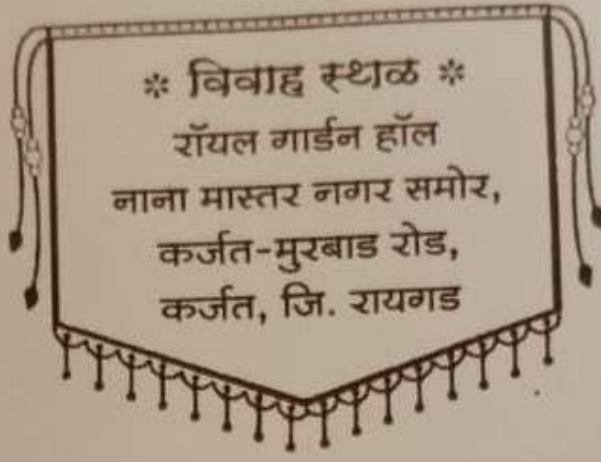 * विवाह स्थळ *
रॉयल गार्डन हॉल
नाना मास्तर नगर समोर,
कर्जत-मुरबाड रोड,
कर्जत, जि. रायगड